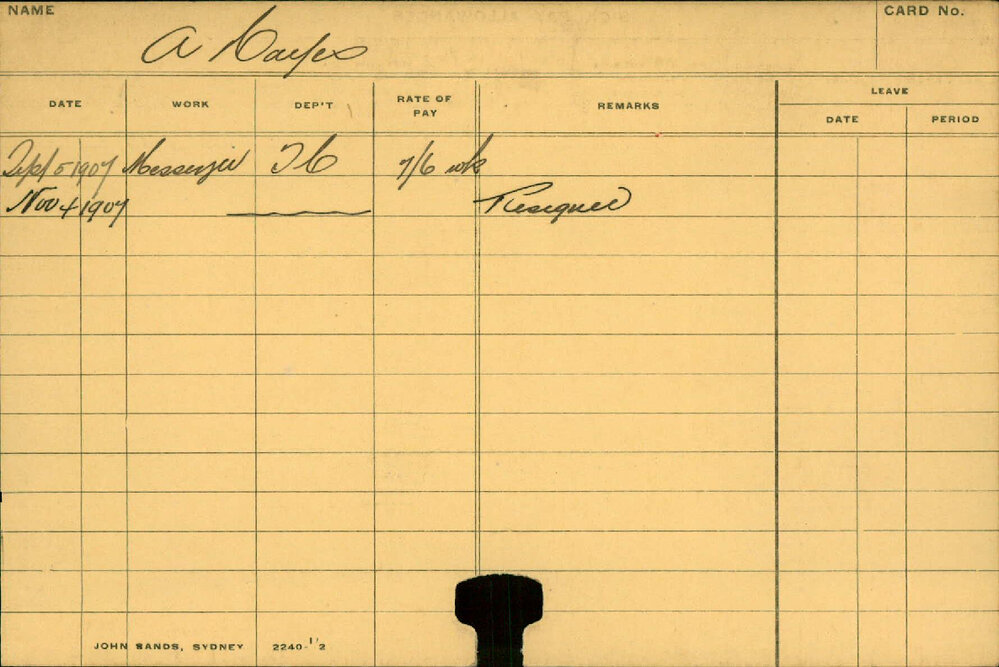 NAME
CARD No.
A
DATE WORK DEP'T RATE OF PAY REMARKS LEAVE
DATE PERIOD
Sept 5 1907 Messenger 7/6 wk
Nov 4 1907 Resigned
JOHN SANDS, SYDNEY 2240-1/2